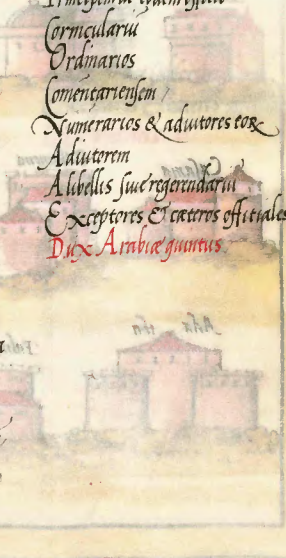 Corniculariu
Ordinarios
Comentariensem
Numerarios & adiutores eor
Adiutorem
A libellis sive regerendariu
Exceptores & cæteros offitiales
Dux Arabiæ quintus